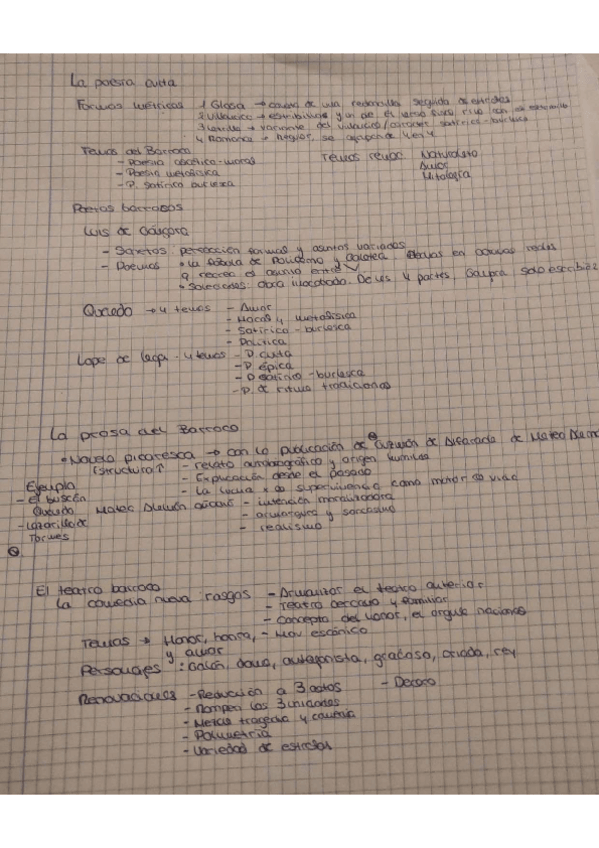 La poesía culta
Formas métricas 1 Glosa → consta de una redondilla seguida de estrofas
2 Villancico → estribillos y un pie. el verso final rima con el estribillo
3 Letrilla → variante del villancico/carácter satírico-burlesco
4 Romance → se agrupan de 4 en 4
Temas del Barroco Temas renac Naturaleza
- Poesía ascética-moral Amor
- Poesía metafísica Mitología
- P. satírico burlesca
Poetas barrocos
Luis de Góngora
- Sonetos: perfección formas y asuntos variados
- Poemas • La fábula de Polifemo y Galatea, en octavas reales
q. recrea el asunto entre
• Soledades: Obra inacabada. De las 4 partes, solo escribió 2
Quevedo → 4 temas - Amor
- Moral y metafísica
- Satírico-burlesca
- Política
Lope de Vega · 4 temas - P. culta
- P. épica
- P satírico-burlesca
- P. de ritmo tradicional
La prosa del Barroco
• Novela picaresca → con la publicación de Guzmán de Alfarache de Mateo Alemán
(structura) - relato autobiográfico y origen humilde
Ejemplo - Explicación desde el pasado
- el buscón - La lucha x la supervivencia como motor su vida
Quevedo Mateo Alemán - intención moralizadora
- Lazarillo de - amargura y sarcasmo
Tormes - realismo
El teatro barroco
La comedia nueva: rasgos - el teatro anterior
- Teatro cercano y familiar
- Concepto del honor, el orgullo nacional
Temas → Honor, honra, - Mov escénico
y amor
Personajes: Galán, dama, antagonista, gracioso, criada, rey
Renovaciones - Reducción a 3 actos - Decoro
- Rompen las 3 unidades
- Mezcla tragedia y comedia
- Polimetría
- Variedad de estrofas